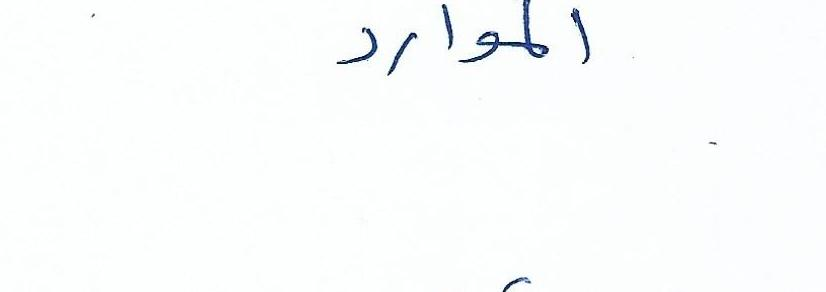 الموارد